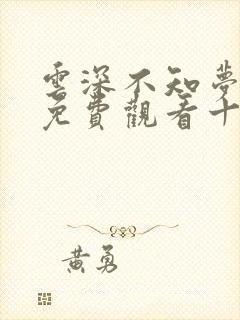 雲深不知夢
免費觀看十
黃勇